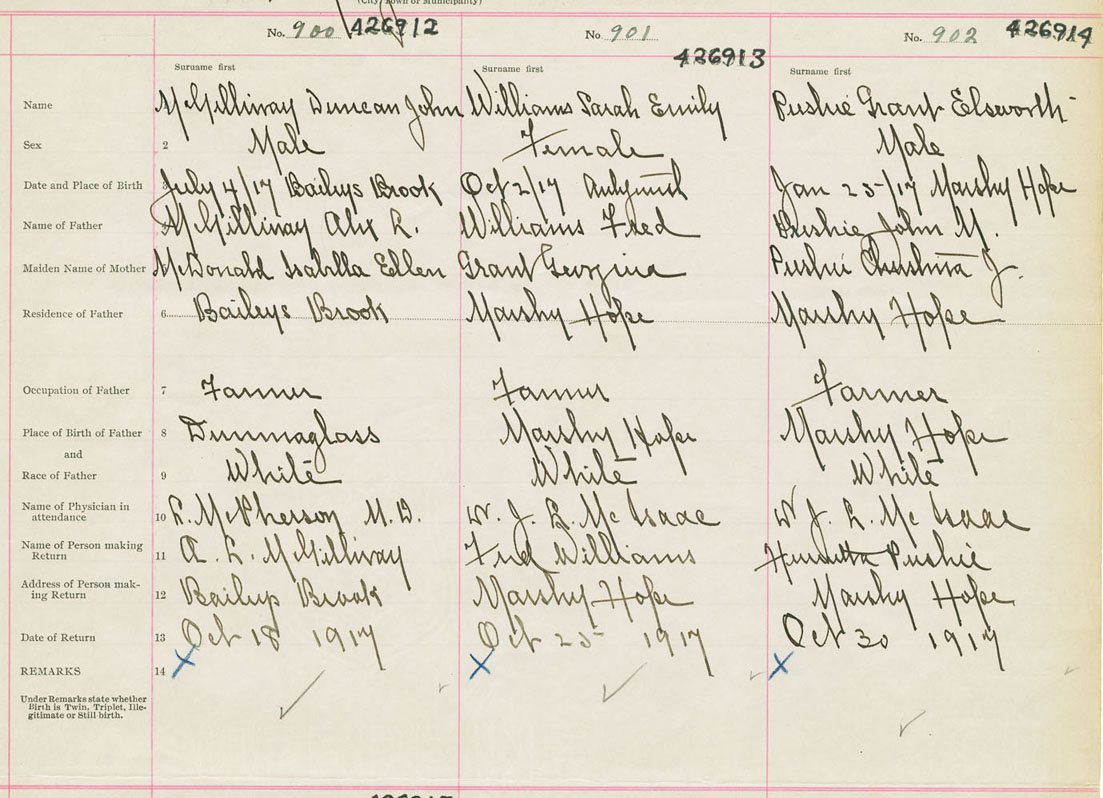 (City, Town or Municipality)
No. 900 426912 No. 901 426913 No. 902 426914
Surname first Surname first Surname first
Name McGillivray Duncan John Williams Sarah Emily Pushie Grant Elsworth
Sex 2 Male Female Male
Date and Place of Birth 3 July 4/17 Baileys Brook Oct 2/17 Antigonish Jan 25/17 Marshy Hope
Name of Father McGillivray Alex R. Williams Fred Pushie John M.
Maiden Name of Mother McDonald Isabella Ellen Grant Georgina Pushie Christina J.
Residence of Father 6 Baileys Brook Marshy Hope Marshy Hope
Occupation of Father 7 Farmer Farmer Farmer
Place of Birth of Father 8 Dunmaglass Marshy Hope Marshy Hope
and
Race of Father 9 White White White
Name of Physician in
attendance 10 McPherson M.D. W. J. McIsaac W J. McIsaac
Name of Person making
Return 11 A. McGillivray Fred Williams Henrietta Pushie
Address of Person mak-
ing Return 12 Baileys Brook Marshy Hope Marshy Hope
Date of Return 13 Oct 18 1917 Oct 25 1917 Oct 30 1917
REMARKS 14 X X X
Under Remarks state whether
Birth is Twin, Triplet, Ille-
gitimate or Still birth.